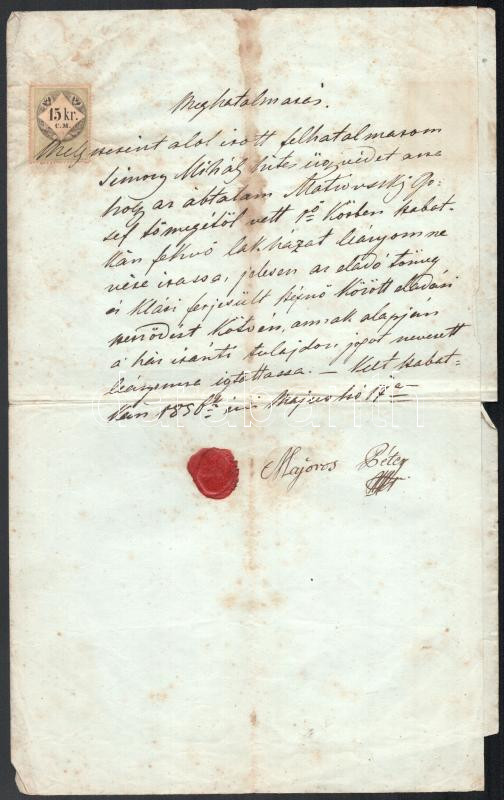 15 kr.
C.M.
Meghatalmazás.
Mely szerént alol irott felhatalmazom
Simony Mihály hites ügyvédet arra
hogy az általam Matiovszky Jo-
sef tömegétöl vett 1ö Körben szabat-
kán fekvö lakházat leányom ne
vére irassa, jelesen az eladó tömeg
és Klári férjesült között eladási
Kötvén, annak alapján
a ház iránti tulajdon jogot nevezett
leányomra – Kelt Szabat-
kán 1856 évi Majus hó 17a
Majoros Péter